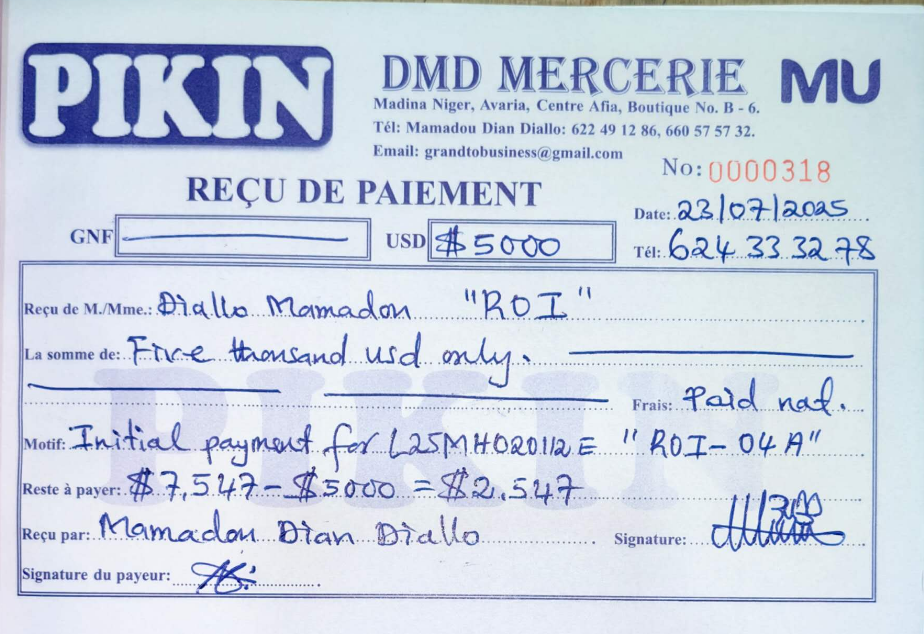 PIKIN
DMD MERCERIE
MU
Madina Niger, Avaria, Centre Afia, Boutique No. B - 6.
Tél: Mamadou Dian Diallo: 622 49 12 86, 660 57 57 32.
Email: grandtobusiness@gmail.com
No: 0000318
REÇU DE PAIEMENT
Date: 23/07/2025
GNF
USD $5000
Tél: 624 33 32 78
Reçu de M./Mme.: Diallo Mamadou "ROI"
La somme de: Five thousand usd only.
Frais: Paid nad.
Motif: Initial payment for L25MH020112E "ROI-04A"
Reste à payer: $7,547 - $5000 = $2,547
Reçu par: Mamadou Dian Diallo
Signature:
Signature du payeur:
PIKIN